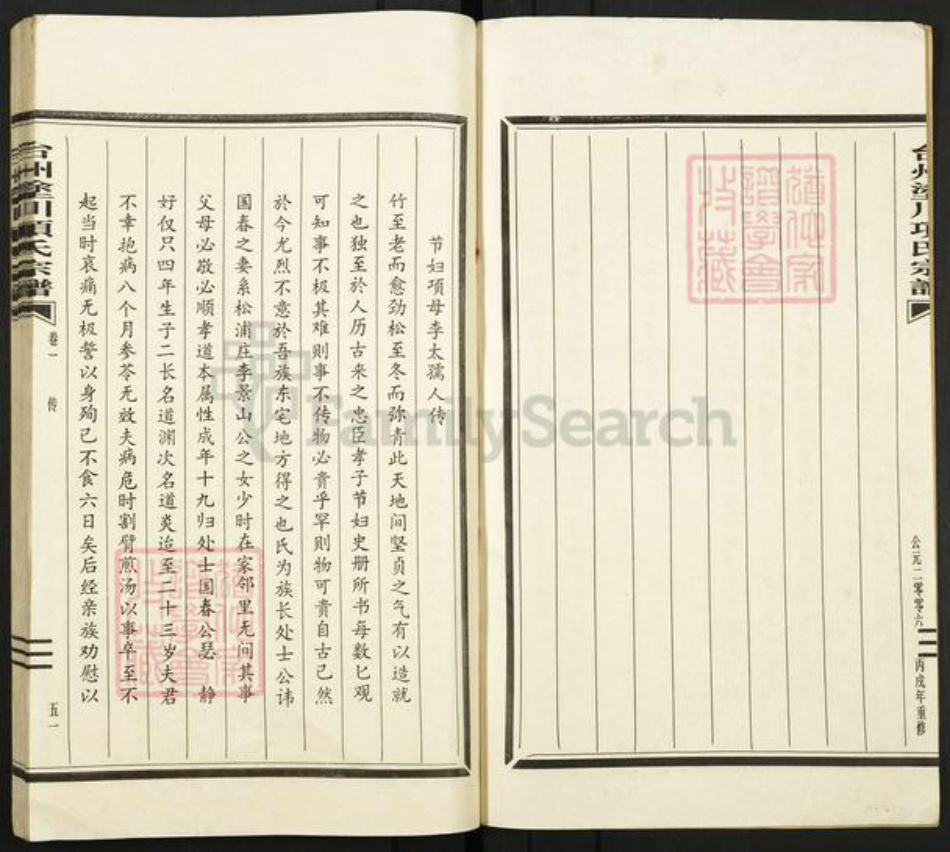 台州塗川项氏宗譜
公元二零零六
丙戌年重修
猶他家譜學會收藏
节妇项母李太孺人传
竹至老而愈劲松至冬而弥青此天地间坚贞之气有以造就
之也独至於人历古来之忠臣孝子节妇史册所书每数匕观
可知事不极其难则事不传物必贵乎罕则物可贵自古已然
於今尤烈不意於吾族东宅地方得之也氏为族长处士公讳
国春之妻系松浦庄李景山公之女少时在家邻里无间其事
父母必敬必顺孝道本属性成年十九归处士国春公瑟 静
好仅只四年生子二长名道渊次名道炎迨至二十三岁夫君
不幸抱病八个月参苓无效夫病危时割臂煎汤以事卒至不
起当时哀痛无极誓以身殉已不食六日矣后经亲族劝慰以
台州塗川项氏宗譜
卷一 传
五一
猶他家譜學會收藏
FamilySearch